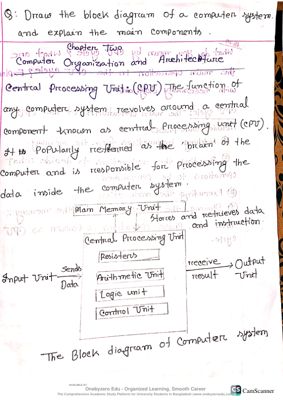 Q: Draw the block diagram of a computer system
and explain the main components.
Chapter Two
Computer Organization and Architecture
Central Processing Unit: (CPU) The function of
any computer system revolves around a central
component known as central Processing unit (CPU).
It is Popularly as the 'brain' of the
Computer and is responsible for Processing the
data inside the computer system.
Main Memory Unit
Stores and retrieves data
and instruction
Central Processing Unit
Resisters
Input Unit Sends Data
Arithmetic Unit
receive result Output Unit
Logic unit
Control Unit
The Block diagram of Computer system
Onebyzero Edu - Organized Learning, Smooth Career
The Comprehensive Academic Study Platform for University Students in Bangladesh
CS CamScanner